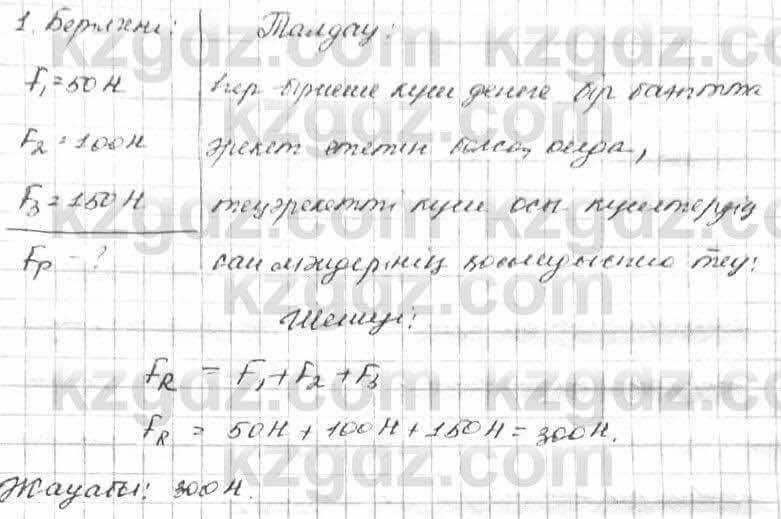 1. Берілгені:
F₁ = 50 Н
F₂ = 100 Н
F₃ = 150 Н
Fр - ?
Талдау:
Егер бірнеше күш денеге бір бағытта
әрекет ететін болса, онда,
теңәрекетті күш осы күштердің
сан мәндерінің қосындысына тең:
Шешуі:
F_R = F₁ + F₂ + F₃
F_R = 50Н + 100Н + 150Н = 300Н.
Жауабы: 300Н.
kzgdz.com